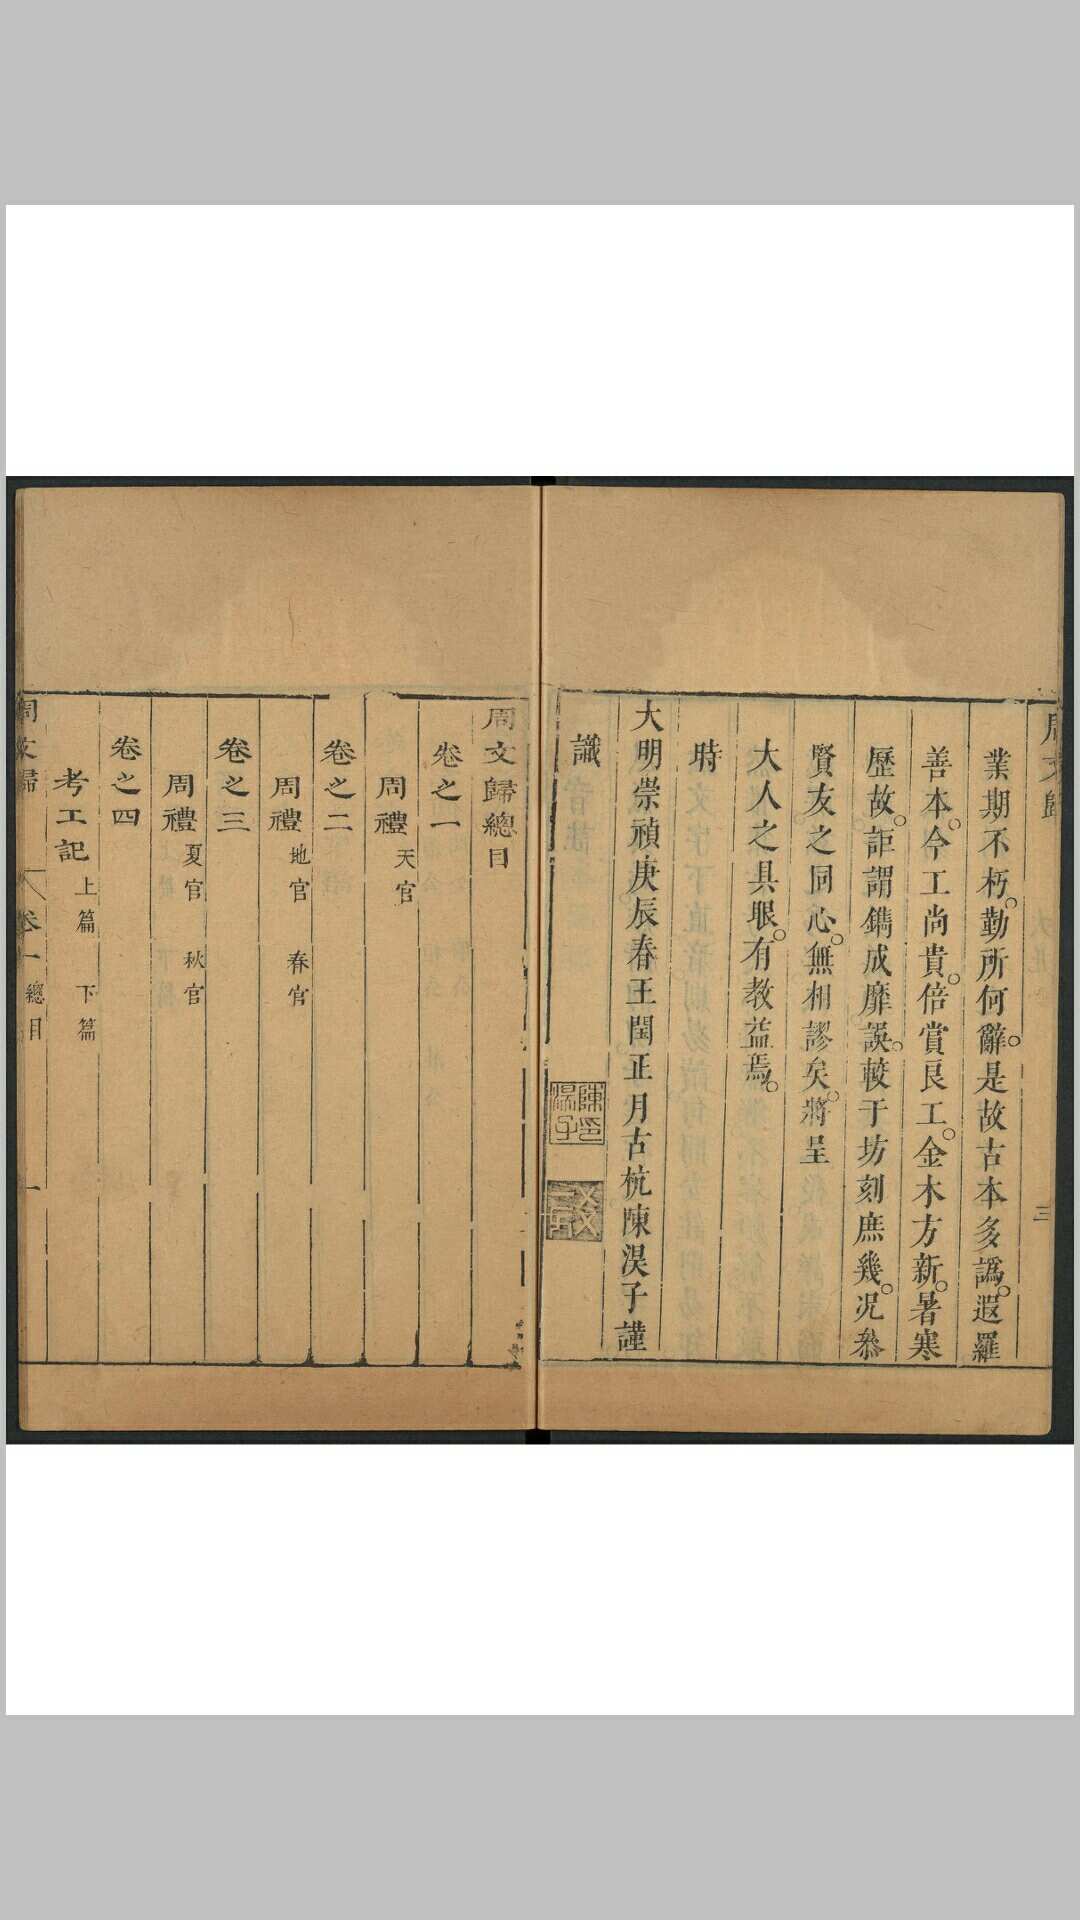 業期不朽勤所何辭是故古本多譌遐羅
善本今工尚貴倍賞良工金木方新暑寒
歷故詎謂鐫成靡誤較于坊刻庶幾况叅
賢友之同心無相謬矣將呈
大人之具眼有教益焉
時
大明崇禎庚辰春王閏正月古杭陳淏子謹
識
陳淏子印
周文歸總目
卷之一
周禮 天官
卷之二
周禮 地官 春官
卷之三
周禮 夏官 秋官
卷之四
考工記 上篇 下篇
周文歸 卷一 總目 一